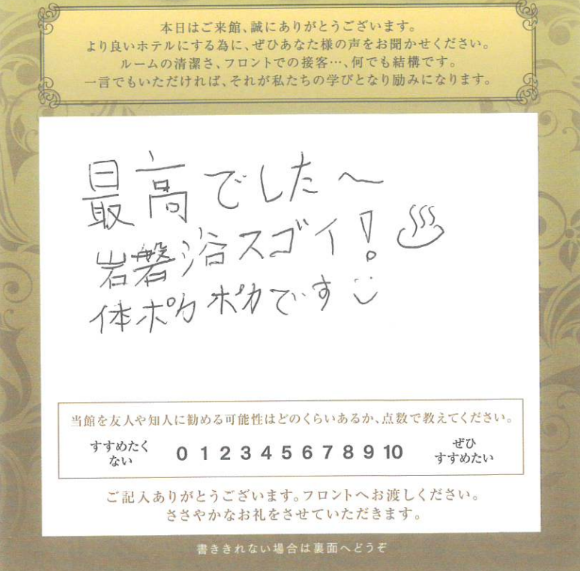 本日はご来館、誠にありがとうございます。
より良いホテルにする為に、ぜひあなた様の声をお聞かせください。
ルームの清潔さ、フロントでの接客…、何でも結構です。
一言でもいただければ、それが私たちの学びとなり励みになります。
最高でした〜
岩磐浴スゴイ!♨
体ポカポカです
当館を友人や知人に勧める可能性はどのくらいあるか、点数で教えてください。
すすめたく
ない
0 1 2 3 4 5 6 7 8 9 10
ぜひ
すすめたい
ご記入ありがとうございます。フロントへお渡しください。
ささやかなお礼をさせていただきます。
書ききれない場合は裏面へどうぞ